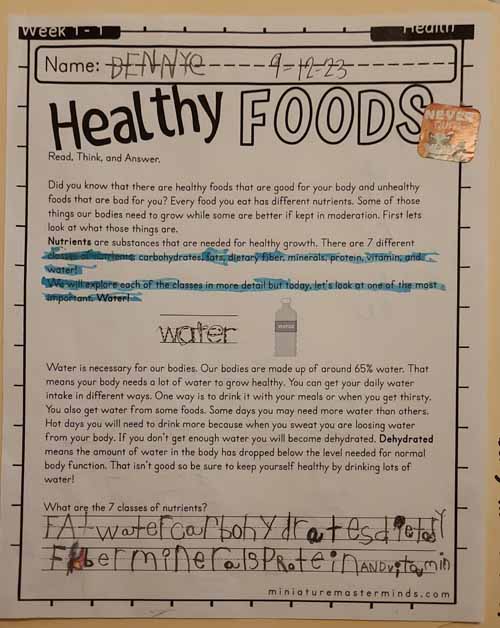 Week 1 - 1
Health
Name: BENNYC 9-12-23
Healthy FOODS
NEVER
QUIT
Read, Think, and Answer.
Did you know that there are healthy foods that are good for your body and unhealthy
foods that are bad for you? Every food you eat has different nutrients. Some of those
things our bodies need to grow while some are better if kept in moderation. First lets
look at what those things are.
Nutrients are substances that are needed for healthy growth. There are 7 different
classes of nutrients: carbohydrates, fats, dietary fiber, minerals, protein, vitamin, and
water!
We will explore each of the classes in more detail but today, let's look at one of the most
important. Water!
water
WATER
Water is necessary for our bodies. Our bodies are made up of around 65% water. That
means your body needs a lot of water to grow healthy. You can get your daily water
intake in different ways. One way is to drink it with your meals or when you get thirsty.
You also get water from some foods. Some days you may need more water than others.
Hot days you will need to drink more because when you sweat you are loosing water
from your body. If you don't get enough water you will become dehydrated. Dehydrated
means the amount of water in the body has dropped below the level needed for normal
body function. That isn't good so be sure to keep yourself healthy by drinking lots of
water!
What are the 7 classes of nutrients?
FAt water carbohydrates
Fiber minerals Protein AND vitamin
miniaturemasterminds.com